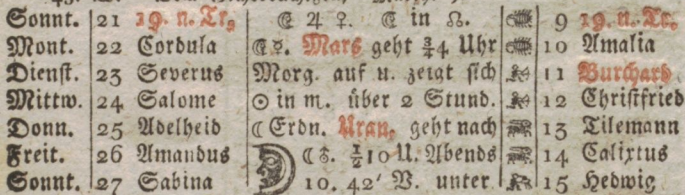 Sonnt. 21 19. n. Tr. ☾ ♃ ♀. ☾ in ☊. 9 19. n. Tr.
Mont. 22 Cordula ☾☿. Mars geht ¾4 Uhr 10 Amalia
Dienst. 23 Severus Morg. auf u. zeigt sich 11 Burchard
Mittw. 24 Salome ☉ in ♏. über 2 Stund. 12 Christfried
Donn. 25 Adelheid ☾Erdn. Uran. geht nach 13 Tilemann
Freit. 26 Amandus ☾♂. ½10 U. Abends 14 Calixtus
Sonnt. 27 Sabina 10. 42' V. unter. 15 Hedwig